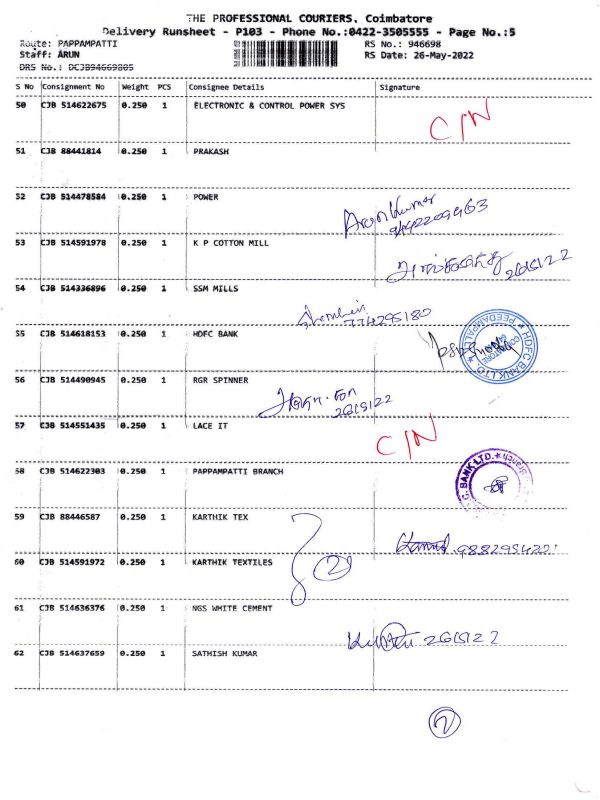 THE PROFESSIONAL COURIERS, Coimbatore
Delivery Runsheet - P103 - Phone No.:0422-3505555 - Page No.:5
Route: PAPPAMPATTI
RS No.: 946698
Staff: ARUN
RS Date: 26-May-2022
DRS No.: DCJB94669805
S No Consignment No Weight PCS Consignee Details Signature
50 CJB 514622675 0.250 1 ELECTRONIC & CONTROL POWER SYS
C/N
51 CJB 88441814 0.250 1 PRAKASH
52 CJB 514478584 0.250 1 POWER
Arun Kumar
53 CJB 514591978 0.250 1 K P COTTON MILL
26/5/22
54 CJB 514336896 0.250 1 SSM MILLS
774295180
55 CJB 514618153 0.250 1 HDFC BANK
HDFC BANK LTD * PEEDAMPALLI *
COIMBATORE
56 CJB 514490945 0.250 1 RGR SPINNER
26/5/22
57 CJB 514551435 0.250 1 LACE IT
C/N
58 CJB 514622303 0.250 1 PAPPAMPATTI BRANCH
BANK LTD. * Branch
59 CJB 88446587 0.250 1 KARTHIK TEX
9882954221
60 CJB 514591972 0.250 1 KARTHIK TEXTILES
2
61 CJB 514636376 0.250 1 NGS WHITE CEMENT
26/5/22
62 CJB 514637659 0.250 1 SATHISH KUMAR
2